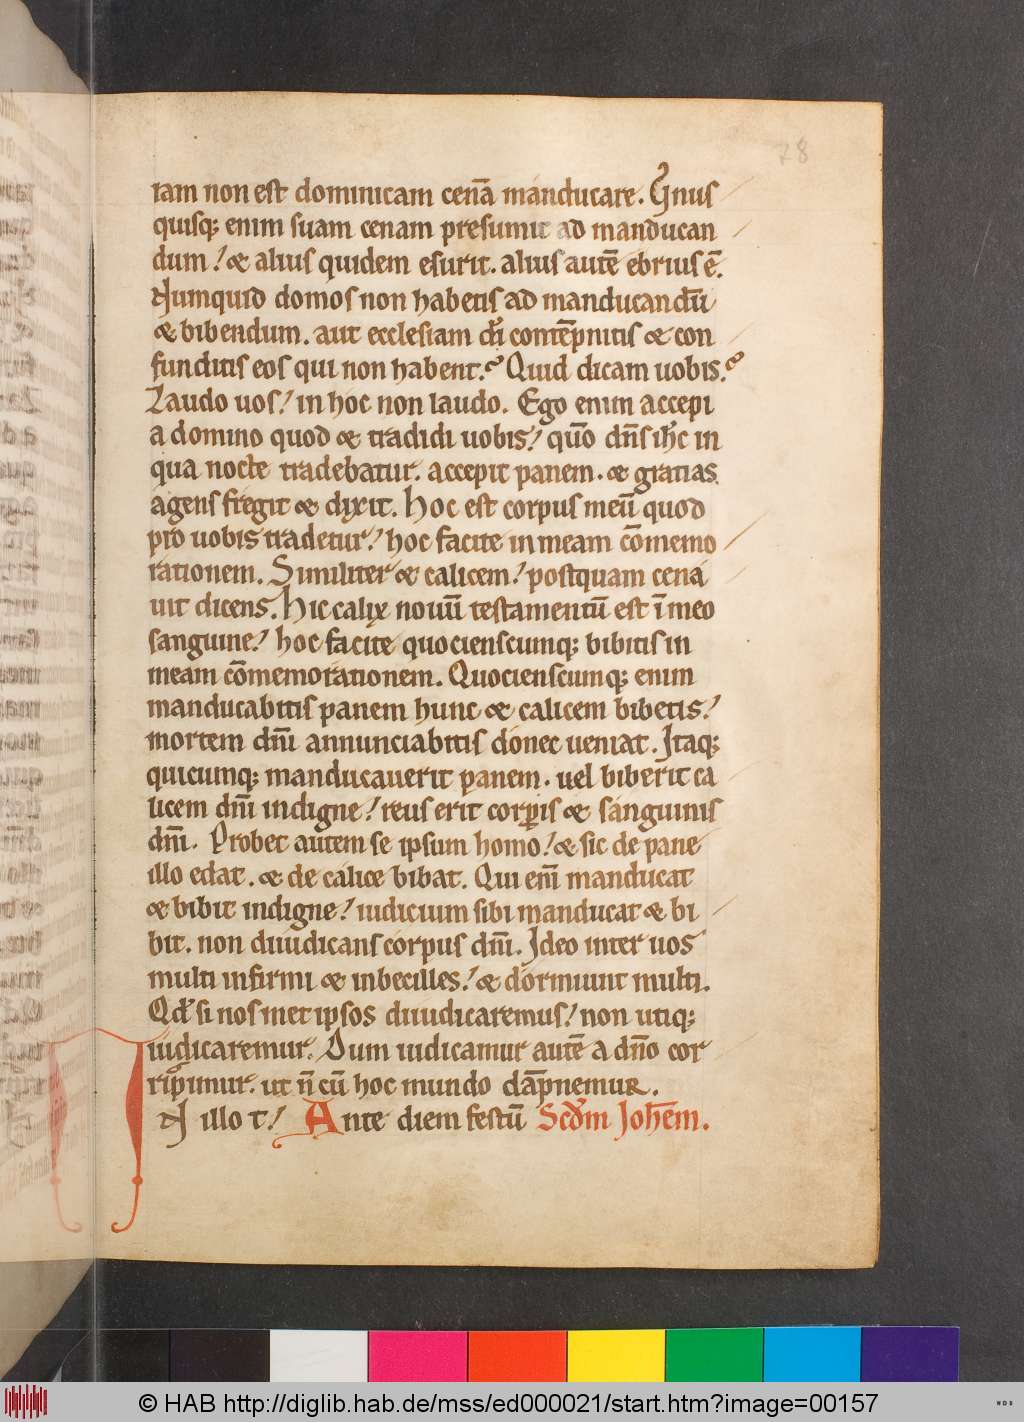 78
ram non est dominicam cenā manducare. Gnus
quisq; enim suam cenam presumit ad manducan
dum! & alius quidem esurit. alius autē ebrius ē.
Numquid domos non habetis ad manducandū
& bibendum. aut ecclesiam di contēpnitis & con
funditis eos qui non habent.? Quid dicam uobis.?
Laudo uos! in hoc non laudo. Ego enim accepi
a domino quod & tradidi uobis! quō dn̄s ih̄c in
qua nocte tradebatur. accepit panem. & gratias
agens fregit & dixit. Hoc est corpus meū quod
pro uobis tradetur! hoc facite in meam cōmemo
rationem. Similiter & calicem! postquam cena
uit dicens. Hic calix nouū testamentū est ī meo
sanguine! hoc facite quocienscumq; bibitis in
meam cōmemorationem. Quocienscumq; enim
manducabitis panem hunc & calicem bibetis!
mortem dn̄i annunciabitis donec ueniat. Itaq;
quicumq; manducauerit panem. uel biberit ca
licem dn̄i indigne! reus erit corp̄is & sanguinis
dn̄i. Probet autem se ipsum homo! & sic de pane
illo edat. & de calice bibat. Qui enī manducat
& bibit indigne! iudicium sibi manducat & bi
bit. non diiudicans corpus dn̄i. Ideo inter uos
multi infirmi & inbecilles! & dormiunt multi.
Qd̄ si nos met ipsos diiudicaremus! non utiq;
iudicaremur. Dum iudicamur autē a dn̄o cor
rip̄imur. ut n̄ cū hoc mundo dāpnemur.
IN illo t! Ante diem festū Scd̄m Joh̄em.
© HAB http://diglib.hab.de/mss/ed000021/start.htm?image=00157